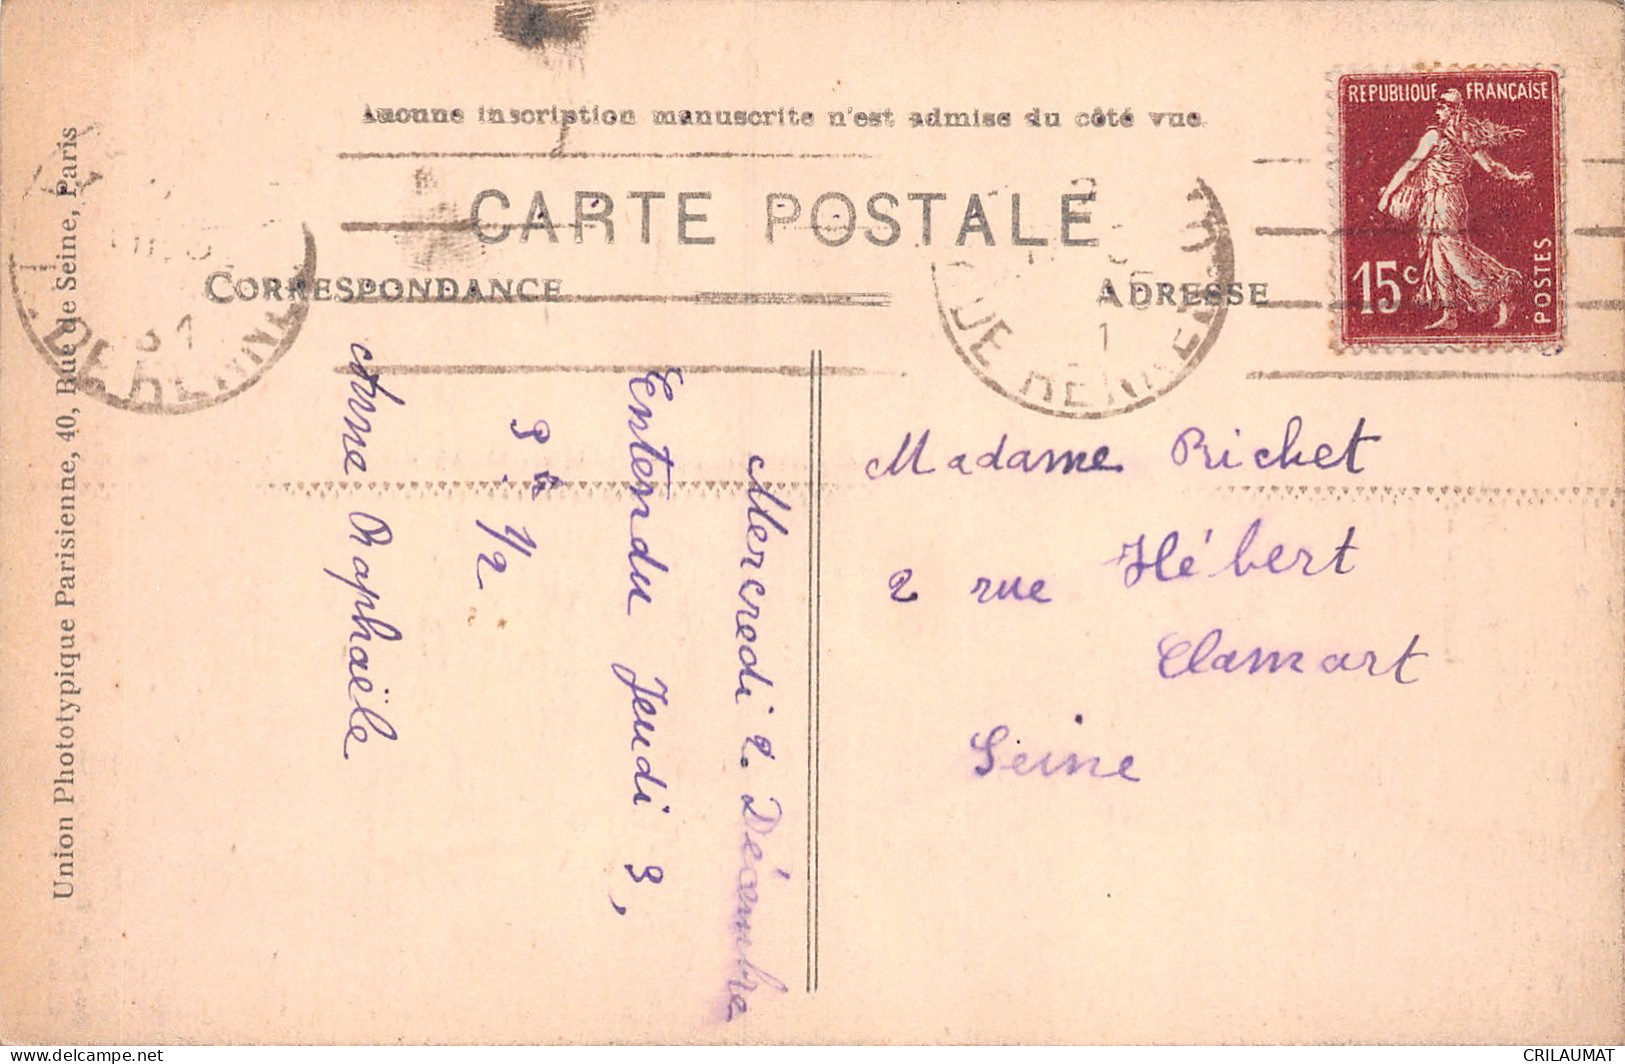 Aucune inscription manuscrite n'est admise du côté vue
CARTE POSTALE
CORRESPONDANCE
ADRESSE
REPUBLIQUE FRANÇAISE
15c
POSTES
DE RENNES
DE RENNES
Union Phototypique Parisienne, 40, Rue de Seine, Paris
Mercredi 2 Décembre
Entendu Jeudi 3,
3h 1/2
Anne Raphaële
Madame Richet
2 rue Hébert
Clamart
Seine
CRILAUMAT